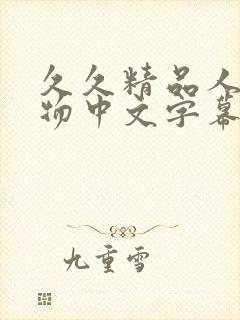 久久精品人
物中文字幕
九重雪